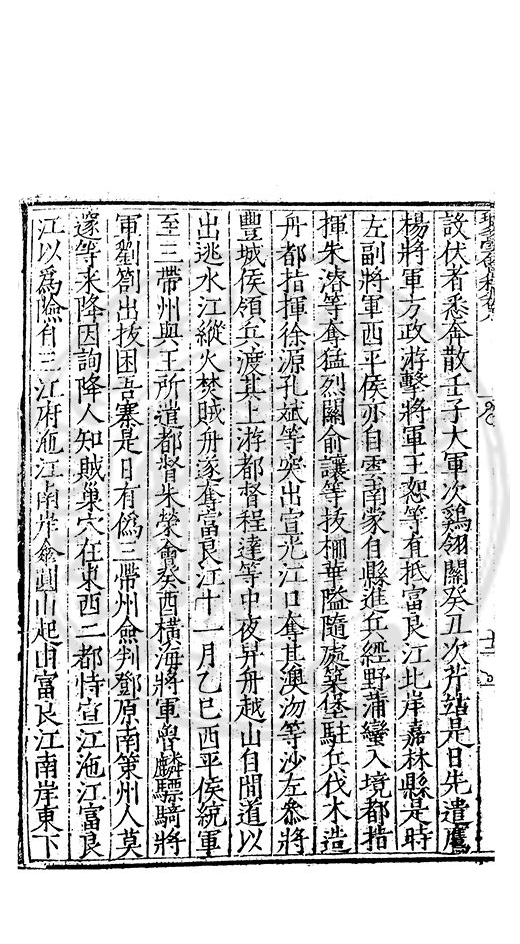 設伏者悉奔散壬子大軍次鷄翎關癸丑次芹站是日先遣鷹
楊將軍方政游擊將軍王恕等直抵富良江北岸嘉林縣是時
左副將軍西平侯亦自雲南蒙自縣進兵經野蒲蠻入境都指
揮朱濬等奪猛烈關俞讓等拔柵華隘隨處築堡駐兵伐木造
舟都指揮徐源孔斌等突出宣光江口奪其澳沕等沙左叅將
豐城侯領兵渡其上游都督程達等中夜舁舟越山自間道以
出逃水江縱火焚賊舟遂奪富良江十一月乙巳西平侯統軍
至三帶州與王所遣都督朱榮會癸酉橫海將軍魯麟驃騎將
軍劉劄出拔困吾寨是日有僞三帶州僉判鄧原南策州人莫
邃等來降因詢降人知賊巢穴在東西二都恃宣江沲江富良
江以爲險自三江府沲江南岸傘圓山起由富良江南岸東下